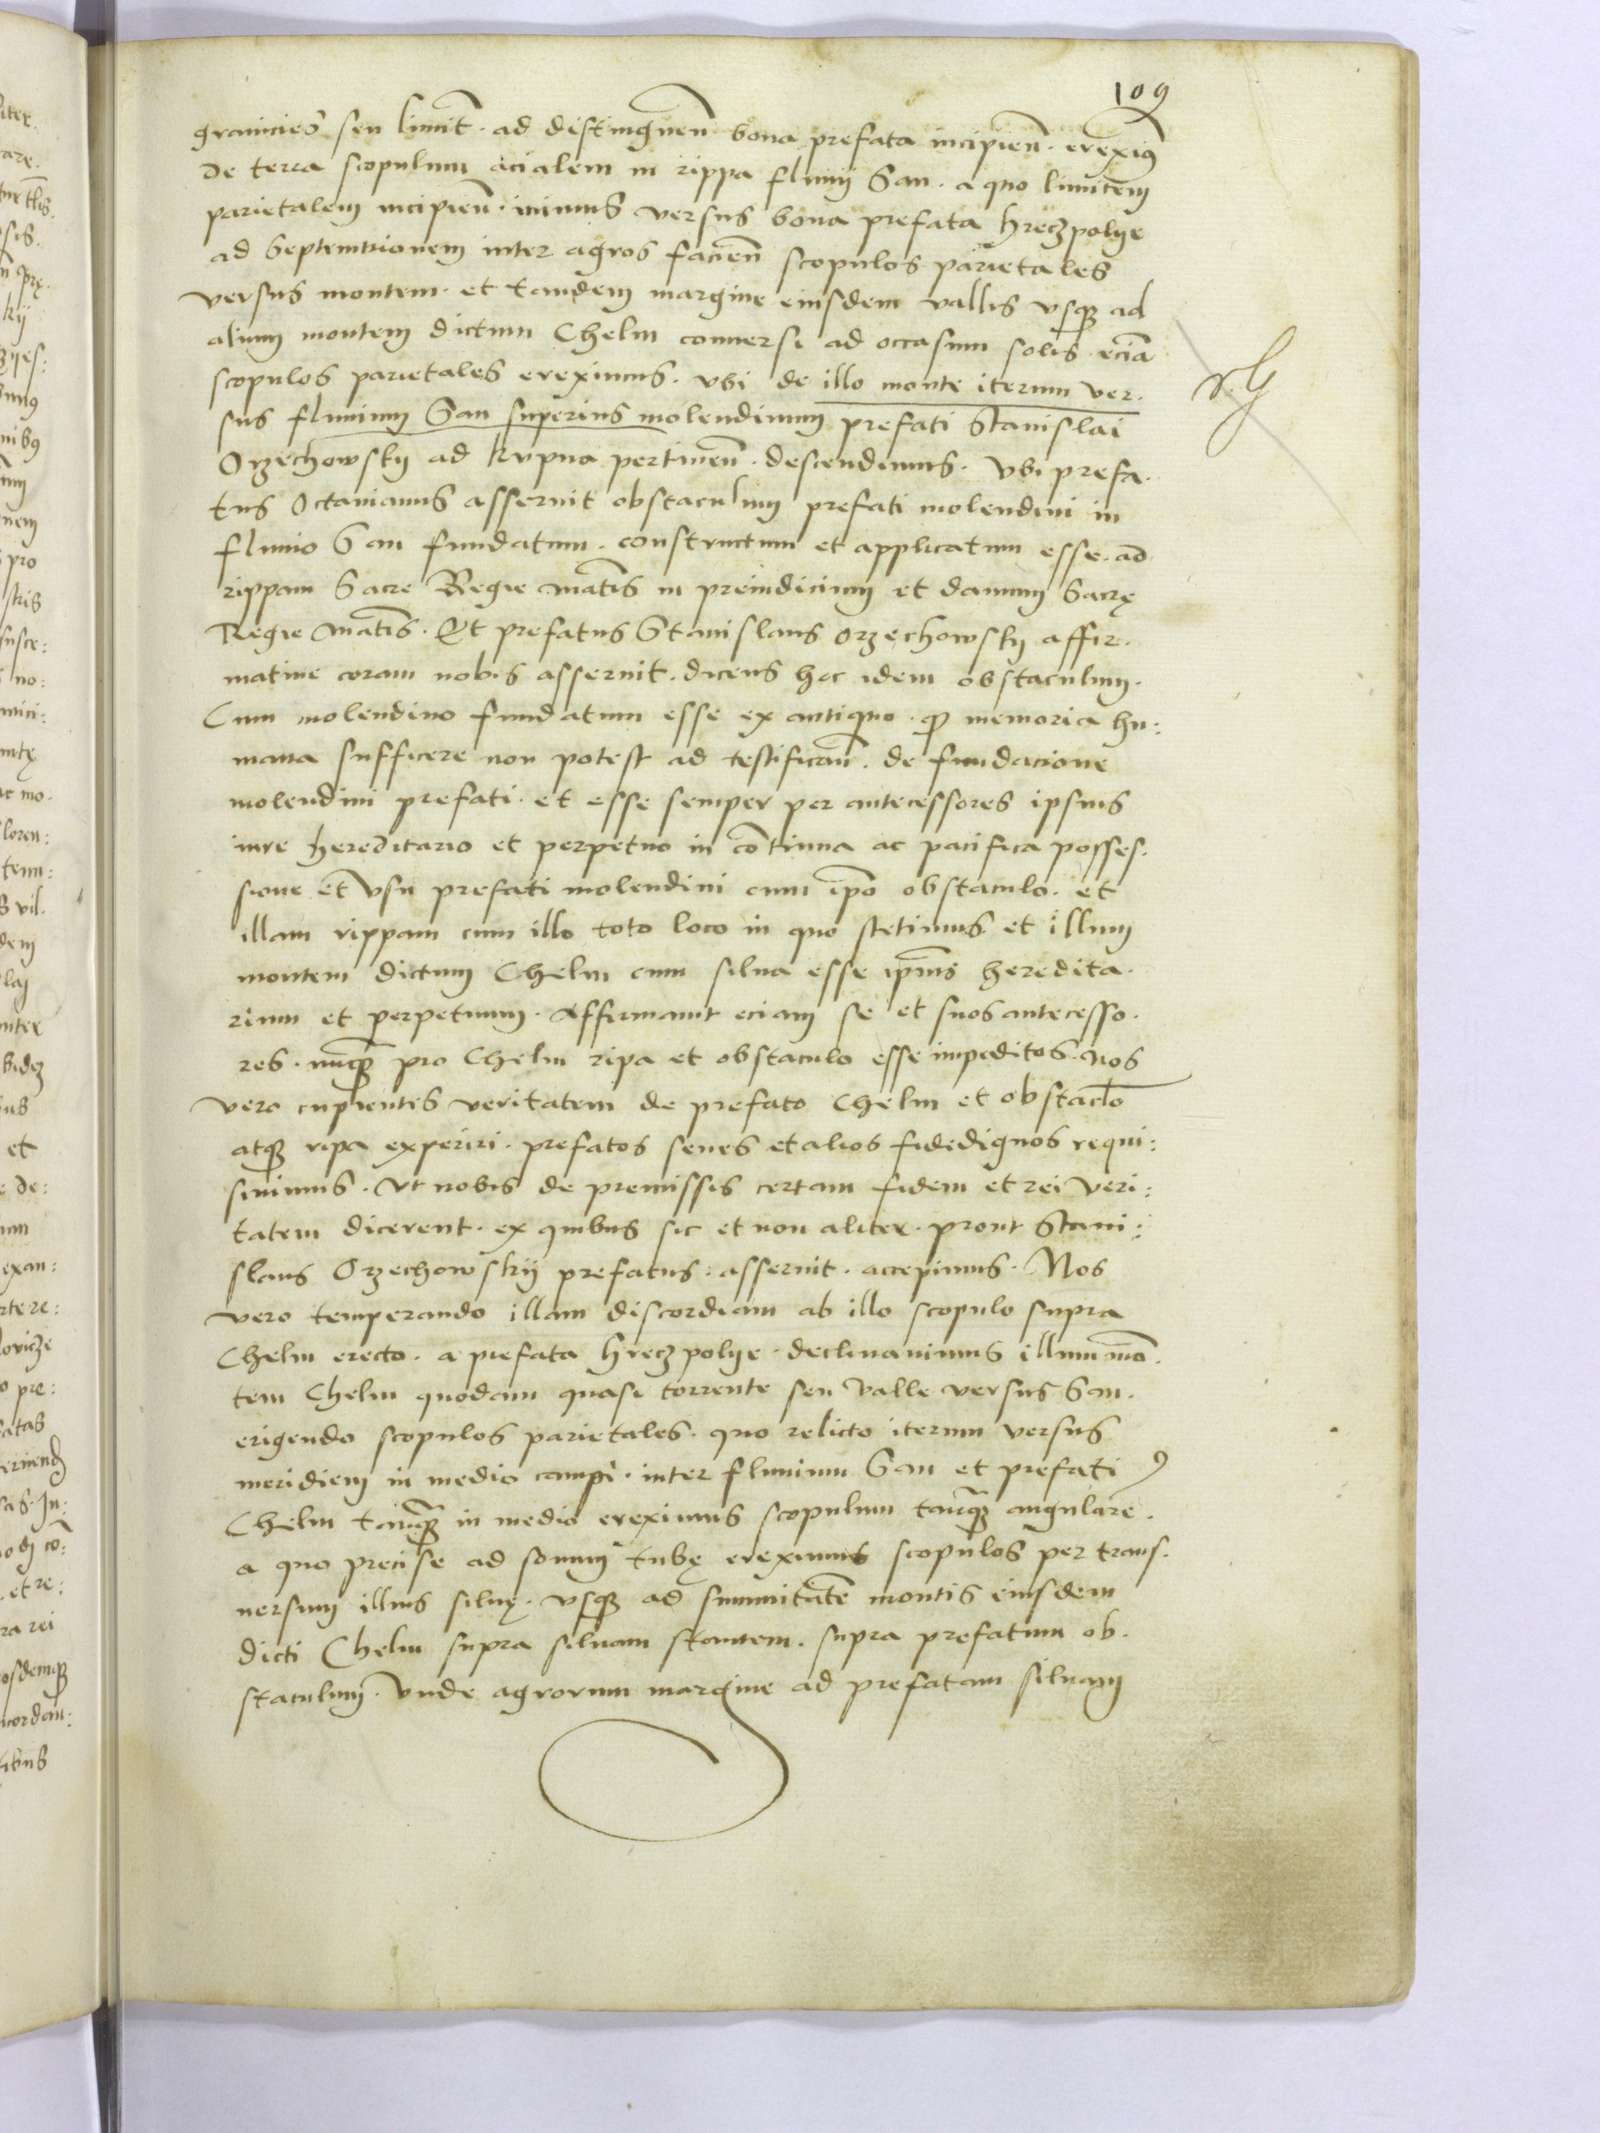 109
granicies seu limit. ad distinguen̄ bona prefata incipien̄. erexim9
de terra scopulum acialem in rippa fluuij San. a quo limitem
parietalem incipien̄. iuimus versus bona prefata hreczpolye
ad Septemtrionem inter agros facien̄ scopulos parietales
versus montem. et tandem margine eiusdem vallis vsq3 ad
alium montem dictum Chelm conuersi ad occasum solis eciā
scopulos parietales ereximus. vbi de illo monte iterum ver.
sus fluuium San superius molendinum prefati Stanislai
Orzechowskij ad krvpna pertinen̄. descendimus. Vbi prefa.
tus Octauianus asseruit obstaculum prefati molendini in
fluuio San fundatum. constructum et applicatum esse. ad
rippam Sacre Regie mat̄is in preiudicium et damnum Sacrę
Regie mat̄is. Et prefatus Stanislaus orzechowskij affir.
matiue coram nobis asseruit. dicens hoc idem obstaculum.
Cum molendino fundatum esse ex antiquo. q̄ memoria hu:
mana sufficere non potest ad testifican̄. de fundacione
molendini prefati. et esse semper per antecessores ipsius
iure hereditario et perpetuo in cōtinua ac pacifica posses.
sione et vsu prefati molendini cum ip̄o obstaculo. et
illam rippam cum illo toto loco in quo stetimus et illum
montem dictum Chelm cum silua esse ip̄ius heredita.
rium et perpetuum. Affirmauit eciam se et suos antecesso.
res. nūq3 pro Chelm ripa et obstaculo esse impeditos. Nos
vero cupientes veritatem de prefato Chelm et obstac̄lo
atq3 ripa experiri. prefatos senes et alios fidedignos requi:
siuimus. Vt nobis de premissis certam fidem et rei veri:
tatem dicerent. ex quibus sic et non aliter. prout Stani:
slaus Orzechowskij prefatus. asseruit. accepimus. Nos
vero temperando illam discordiam ab illo scopulo supra
Chelm erecto. a prefata hreczpolye. declinauimus illum mō.
tem Chelm quodam quasi torrente seu valle versus San.
erigendo scopulos parietales. quo relicto iterum versus
meridiem in medio campi. inter fluuium San et prefati
Chelm tanq3 in medio ereximus scopulum tanq3 angulare.
a quo precise ad sonum tubę ereximus scopulos per trans.
uersum illius siluę. vsq3 ad summitatē montis eiusdem
dicti Chelm supra siluam stantem. supra prefatum ob.
staculum. Vnde agrorum margine ad prefatam siluam